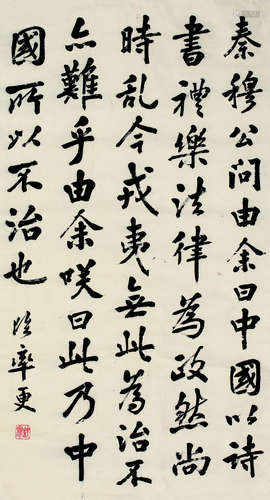 秦穆公问由余曰中國以诗
書禮樂法律為政然尚
時乱今戎夷無此為治不
亦難乎由余咲曰此乃中
國所以不治也
临率更